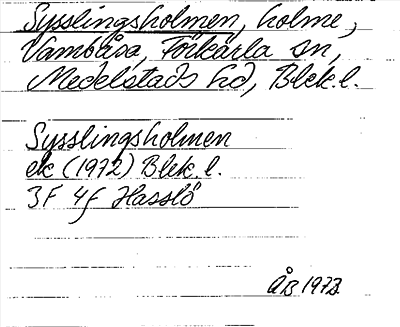 Sysslingsholmen, holme,
Vambåsa, Förkärla sn,
Medelstads hd, Blek.l.
Sysslingsholmen
ek (1972) Blek.l.
3F 4f Hasslö
ÅB 1973